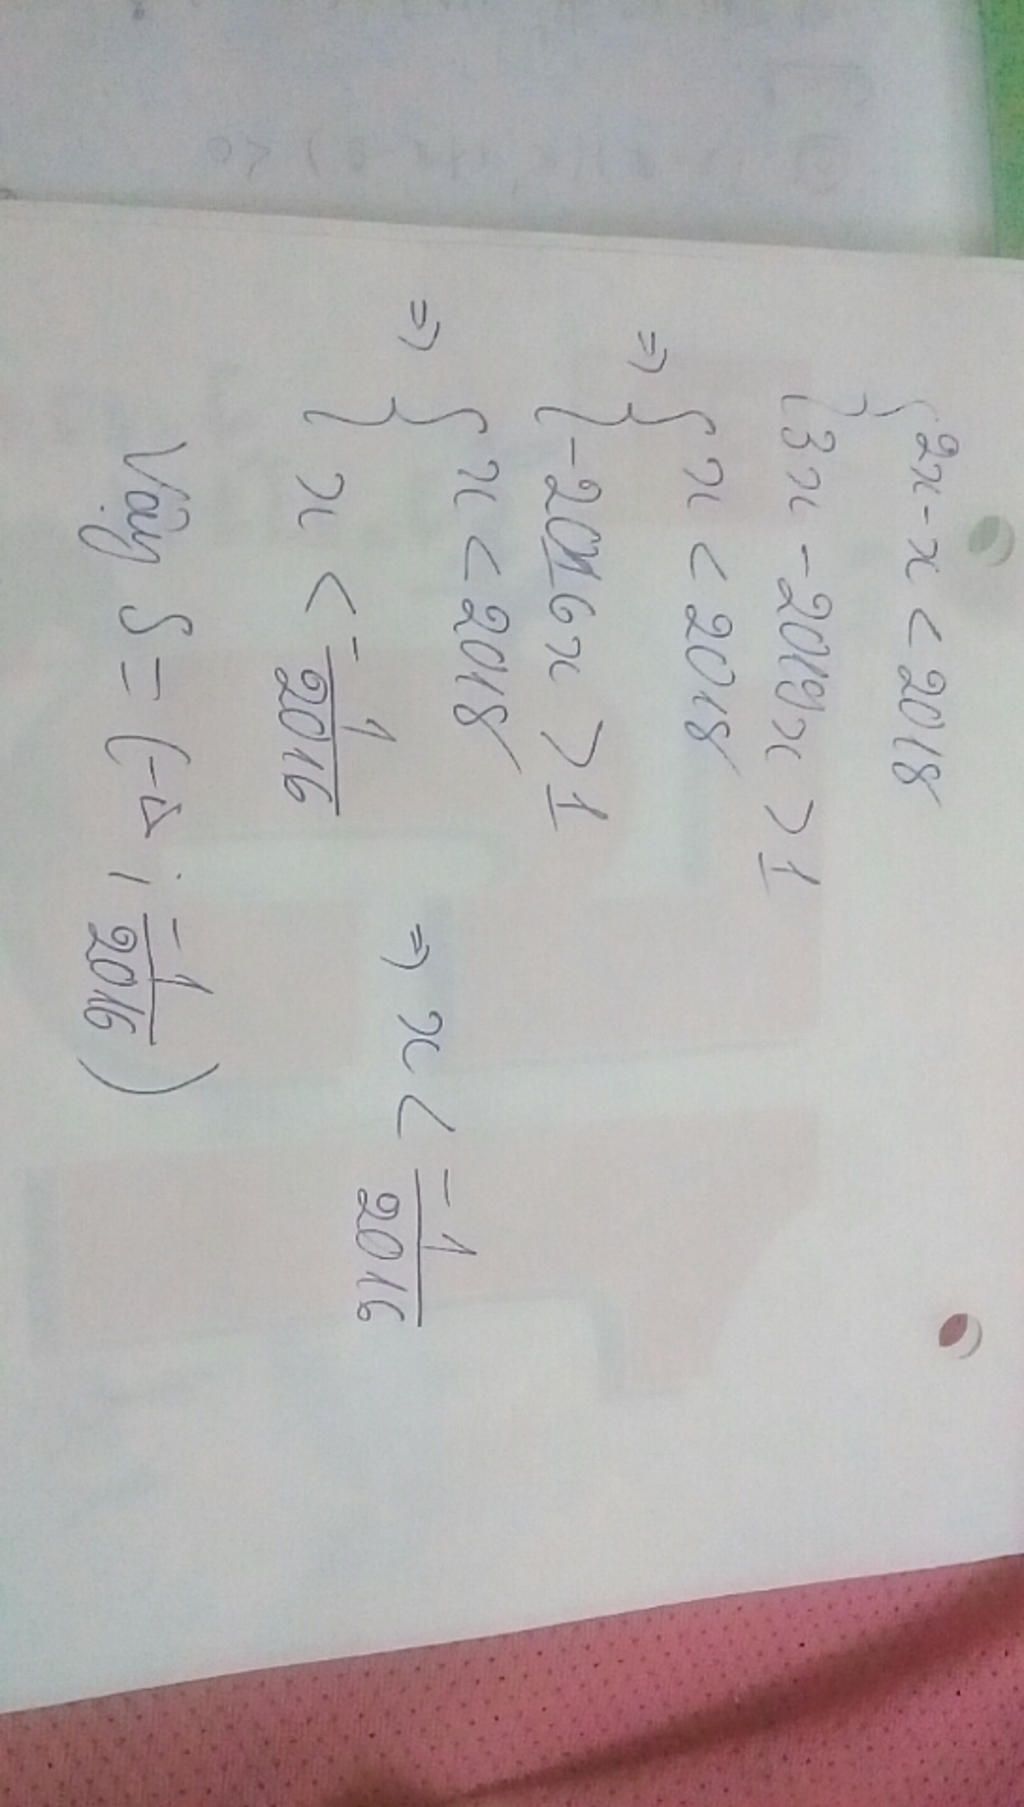 { 2x - x < 2018
3x - 2019x > 1
=> { x < 2018
-2016x > 1
=> { x < 2018
x < -1/2016 => x < -1/2016
Vậy S = (-∞; -1/2016)